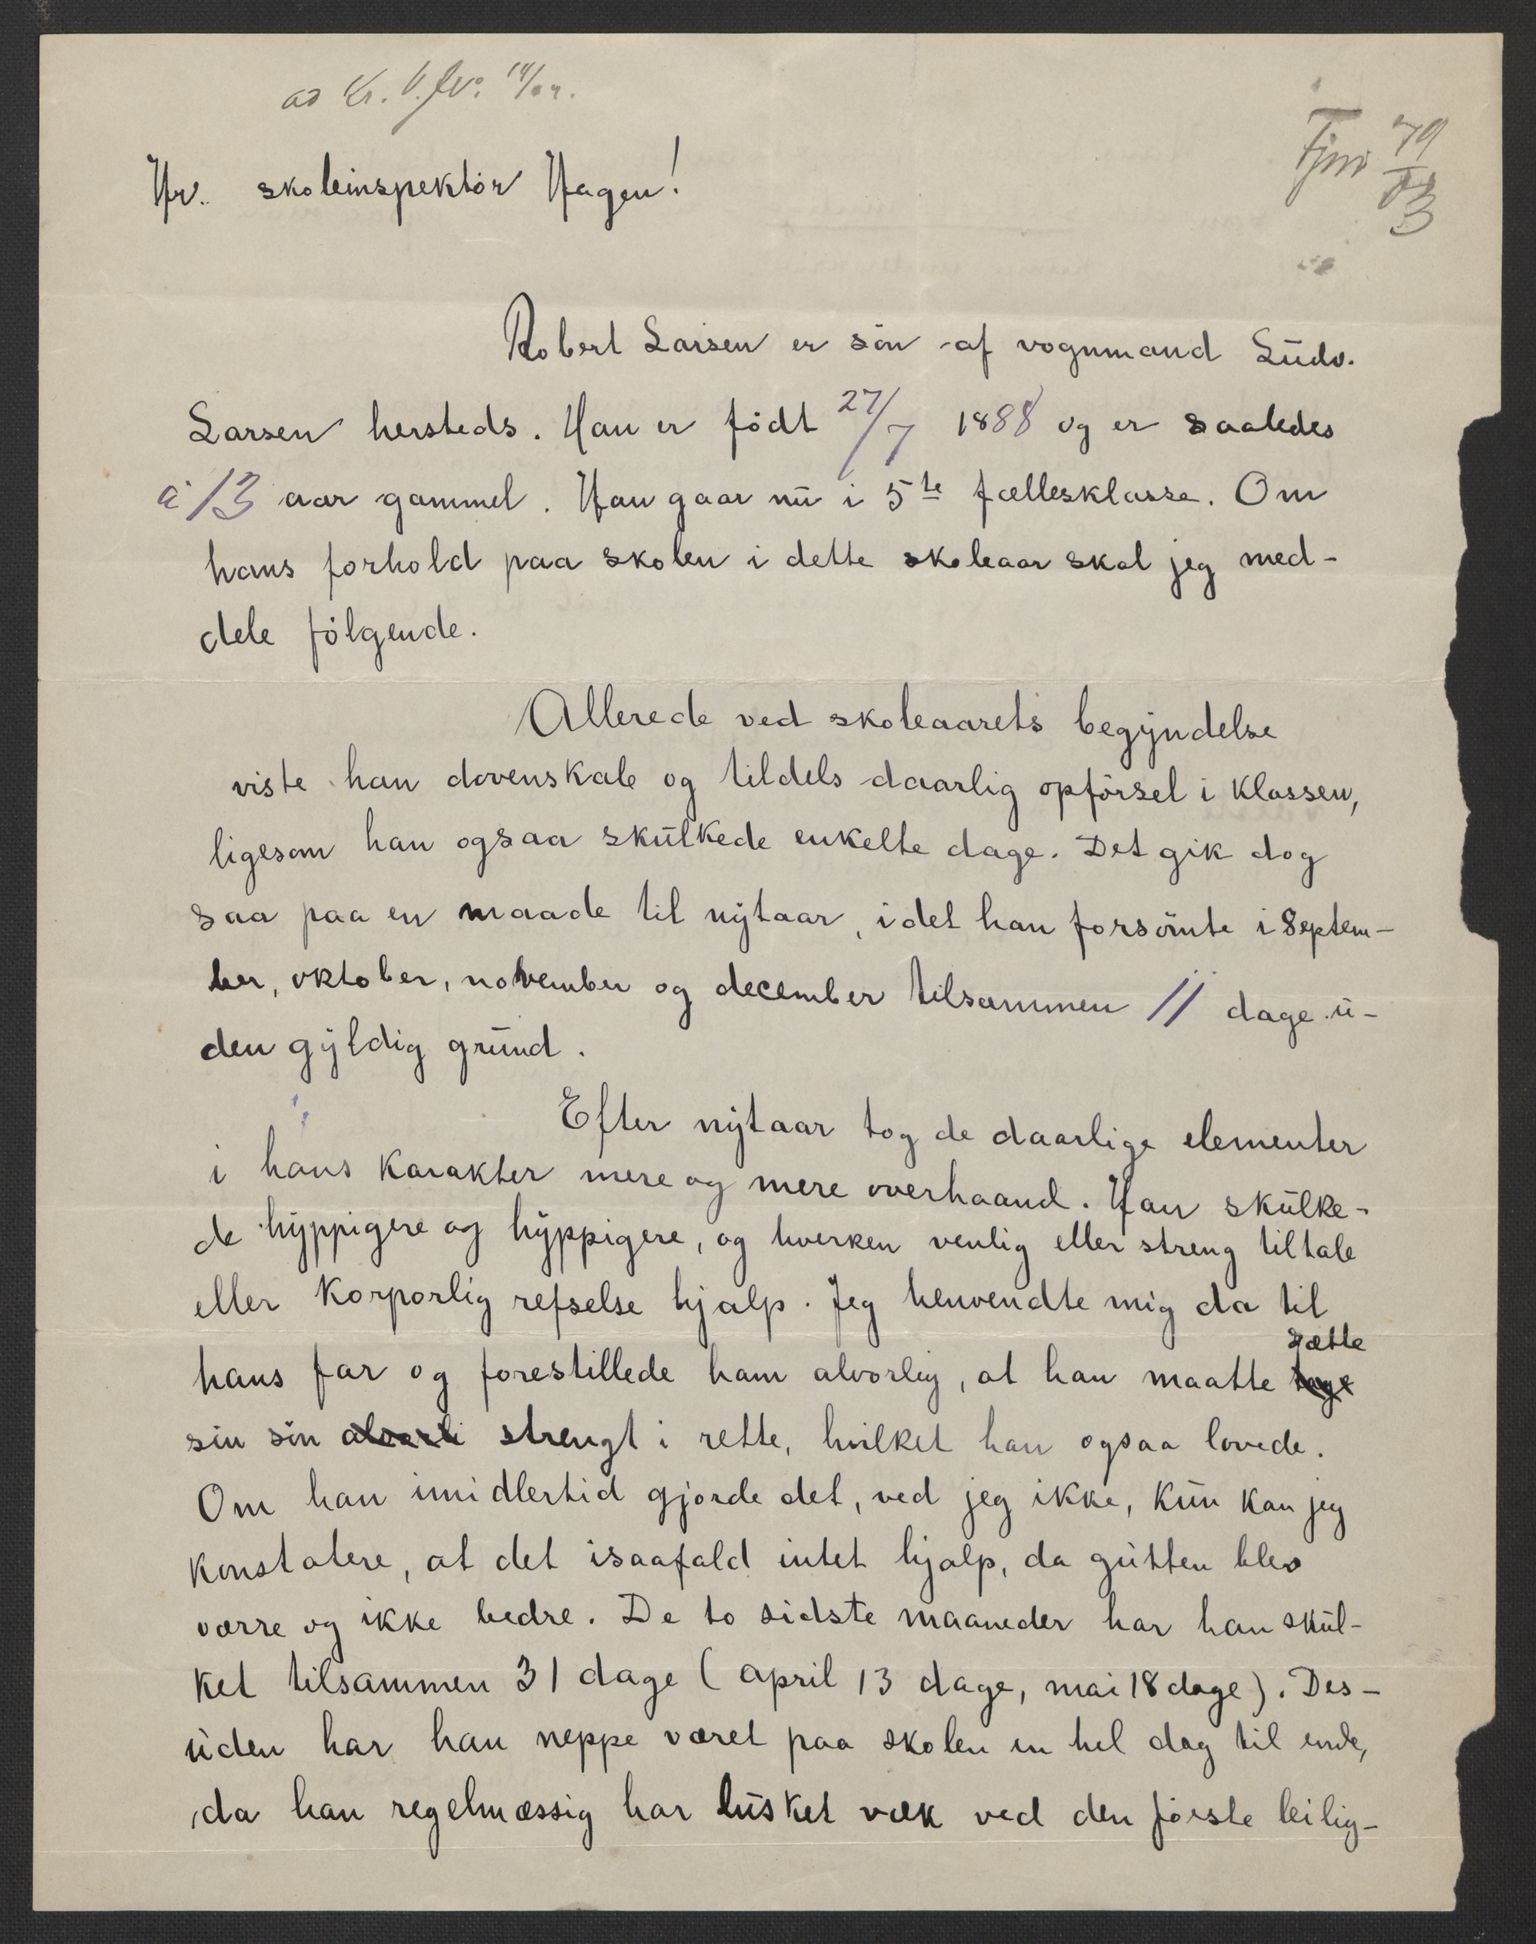 ad Kr. V. Jno 14/02.
79
Hr. skoleinspektør Hagen!
Robert Larsen er søn af vognmand Ludv.
Larsen hersteds. Han er født 27/7 1888 og er saaledes
13 aar gammel. Han gaar nu i 5te fællesklasse. Om
hans forhold paa skolen i dette skoleaar skal jeg med-
dele følgende.
Allerede ved skoleaarets begyndelse
viste han dovenskab og tildels daarlig opførsel i klassen,
ligesom han ogsaa skulkede enkelte dage. Det gik dog
saa paa en maade til nytaar, idet han forsømte i septem-
ber, oktober, november og december tilsammen 11 dage u-
den gyldig grund.
Efter nytaar tog de daarlige elementer
i hans karakter mere og mere overhaand. Han skulke-
de hyppigere og hyppigere, og hverken venlig eller streng tiltale
eller korporlig refselse hjalp. Jeg henvendte mig da til
hans far og forestillede ham alvorlig, at han maatte sætte
sin søn strengt i rette, hvilket han ogsaa lovede.
Om han imidlertid gjorde det, ved jeg ikke, kun kan jeg
konstatere, at det isaafald intet hjalp, da gutten blev
værre og ikke bedre. De to sidste maaneder har han skul-
ket tilsammen 31 dage (april 13 dage, mai 18 dage). Des-
uden har han neppe været paa skolen en hel dag til ende,
da han regelmæssig har lusket væk ved den første leilig-